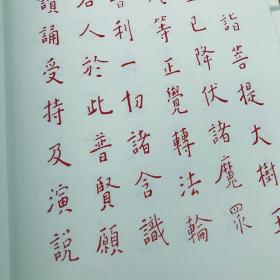 詣菩提大樹王
已降伏諸魔眾
等正覺轉法輪
利一切諸含識
若人於此普賢願
讀誦受持及演說